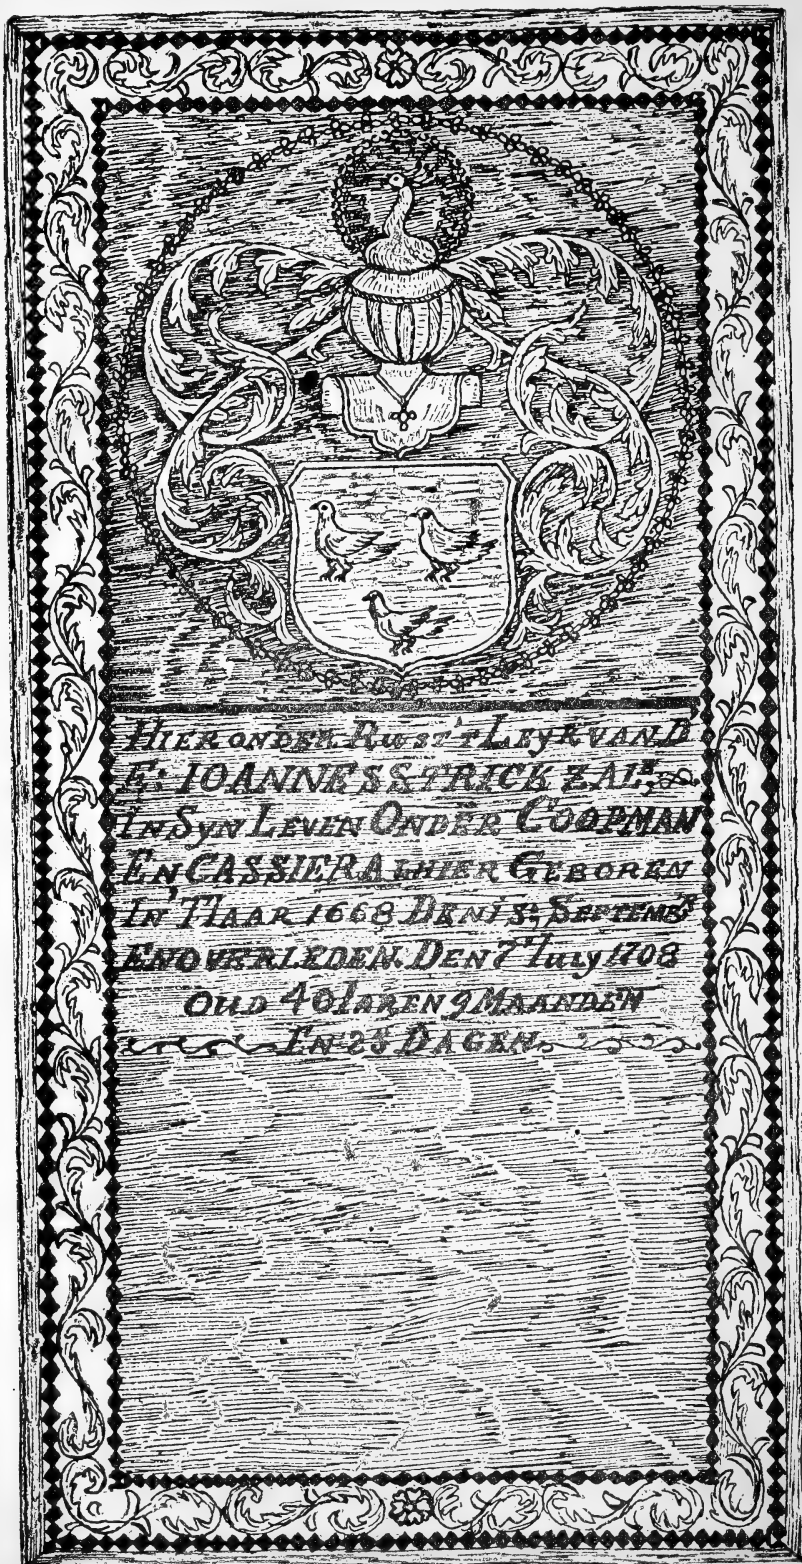 HIER ONDER RUST 'T LEYK VAN D'
E: IOANNES STRICK ZAL:
IN SYN LEVEN ONDER COOPMAN
EN CASSIER ALHIER GEBOREN
IN 'T IAAR 1668 DEN SEPTEMBR
EN OVERLEDEN DEN 7 IULY 1708
OUD 40 IAREN 9 MAANDEN
EN 25 DAGEN